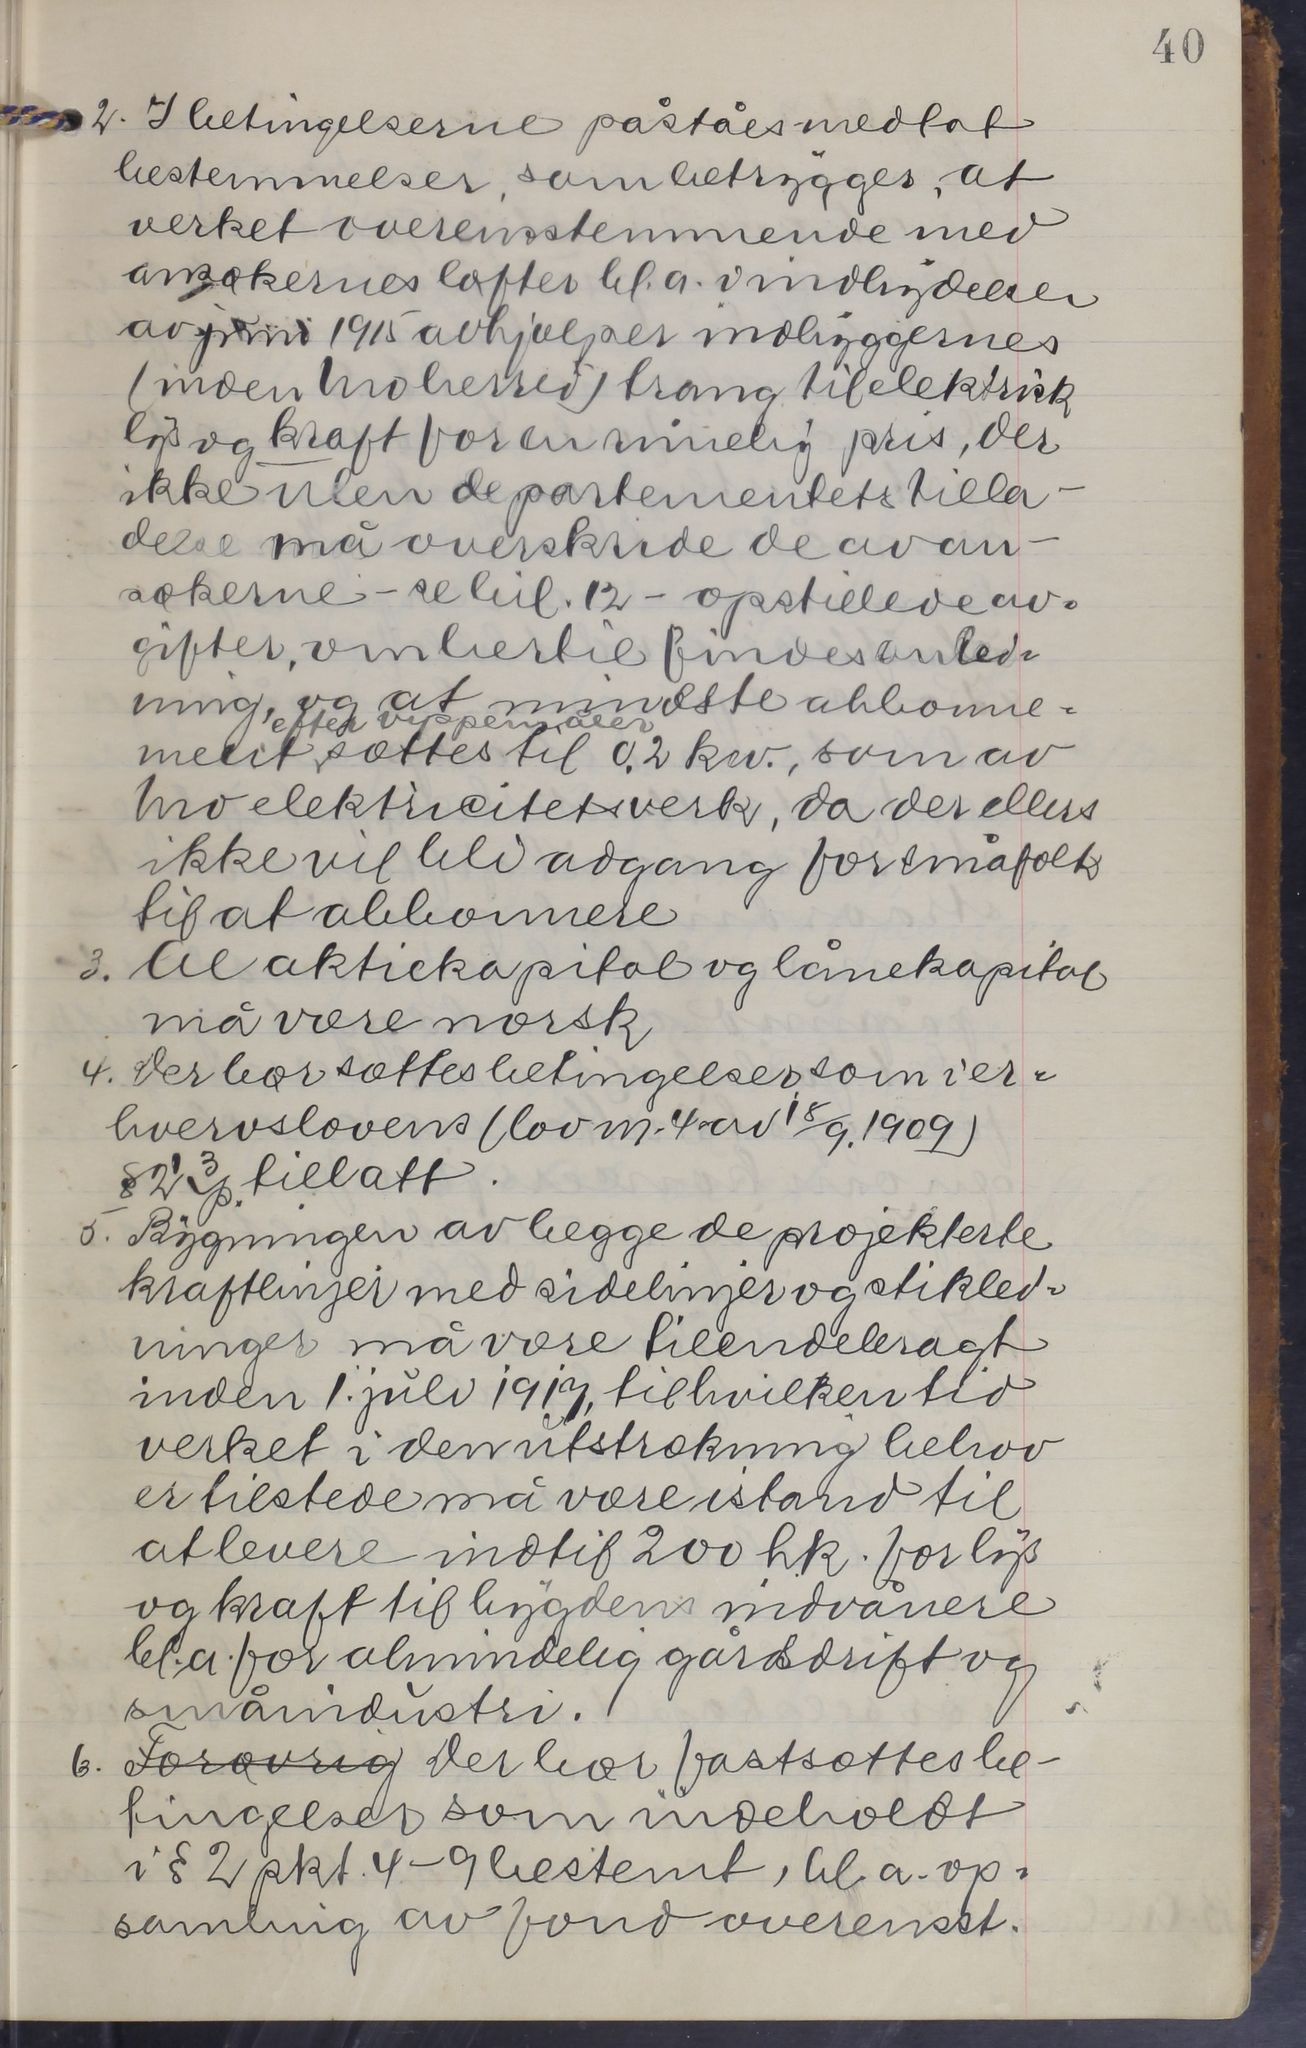 40
2. I betingelserne påståes medtat
bestemmelser, som betrygger, at
verket overensstemmende med
ansøkernes løfter bl.a. i indbydelsen
av juni 1915 avhjælper indbyggernes
(inden Mo herred) trang til elektrisk
lys og kraft for en rimelig pris, der
ikke uten departementets tilla-
delse må overskride de av an-
søkerne - se bil. 12 - opstillede av-
gifter, om hertil findes anled-
ning, og at mindste abbonne-
efter vippemåler
ment sættes til 0,2 kw., som av
Mo elektricitetsverk, da der ellers
ikke vil bli adgang for småfolk
til at abbonnere
3. Al aktiekapital og lånekapital
må være norsk
4. Der bør sættes betingelser, som i er-
hvervslovens (lov nr. 4 av 18/9. 1909)
§ 2 1 3 p. tillatt.
5. Bygningen av begge de projekterte
kraftlinjer med sidelinjer og stikled-
ninger må være tilendebragt
inden 1. juli 1919, til hvilken tid
verket i den utstrækning behov
er tilstede må være istand til
at levere indtil 200 hk. for lys
og kraft til bygdens indvånere
bl.a. for almindelig gårdsdrift og
småindustri.
6. Forøvrig Der bør fastsættes be-
tingelser som indeholdt
i § 2 pkt. 4-9 bestemt, bl.a. op-
samling av fond overensst.